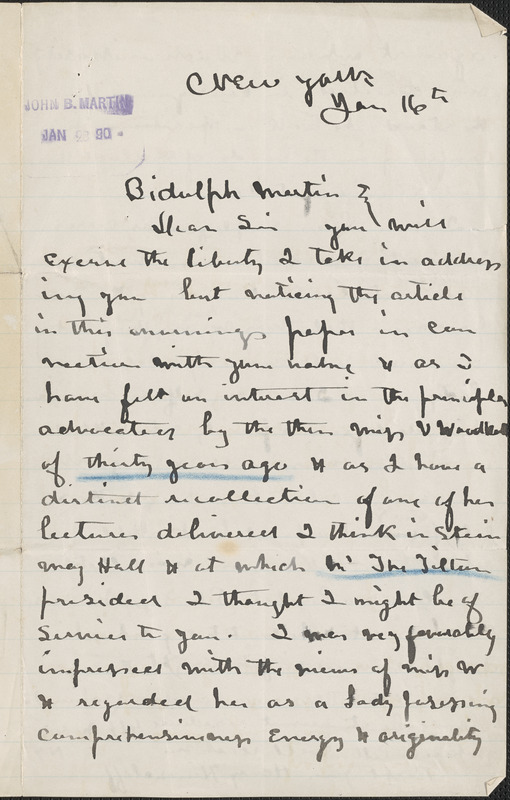 New York
Jan 16th
JOHN B. MARTIN
JAN 90
Bidulph Martin
Dear Sir you will
excuse the liberty I take in address
ing you but noticing the article
in this mornings paper in con
nection with your name & as I
have felt an interest in the principles
advocated by the then Miss V Woodhull
of thirty years ago & as I have a
distinct recollection of one of her
lectures delivered I think in Stein
way Hall & at which Mr Theo Tilton
presided I thought I might be of
Service to you. I was very favorably
impressed with the views of Miss W
& regarded her as a Lady possessing
comprehensiveness Energy & originality